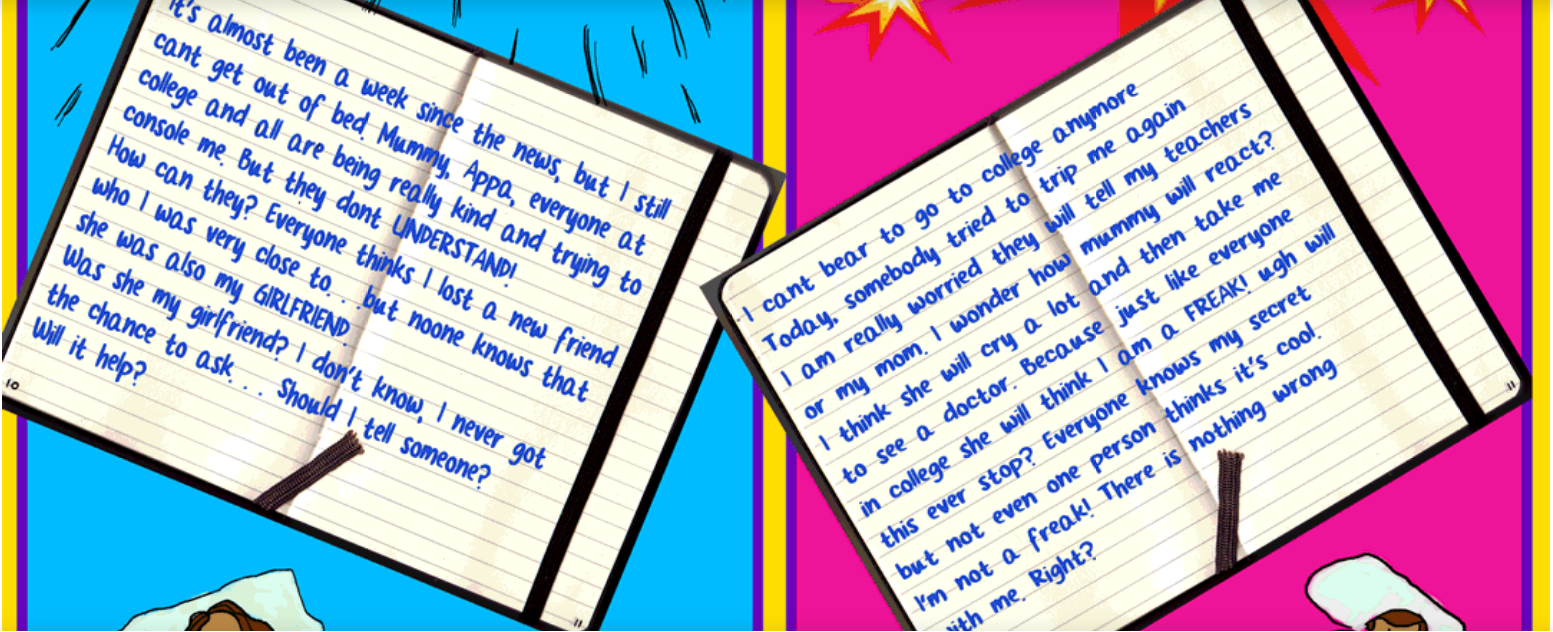 It's almost been a week since the news, but I still
cant get out of bed. Mummy, Appa, everyone at
college and all are being really kind and trying to
console me. But they dont UNDERSTAND!
How can they? Everyone thinks I lost a new friend
who I was very close to. . . but noone knows that
she was also my GIRLFRIEND.
Was she my girlfriend? I don't know, I never got
the chance to ask. . . Should I tell someone?
Will it help?
10
11
I cant bear to go to college anymore
Today, somebody tried to trip me again
I am really worried they will tell my teachers
or my mom. I wonder how mummy will react?
I think she will cry a lot and then take me
to see a doctor. Because just like everyone
in college she will think I am a FREAK! ugh will
this ever stop? Everyone knows my secret
but not even one person thinks it's cool.
I'm not a freak! There is nothing wrong
with me. Right?
11